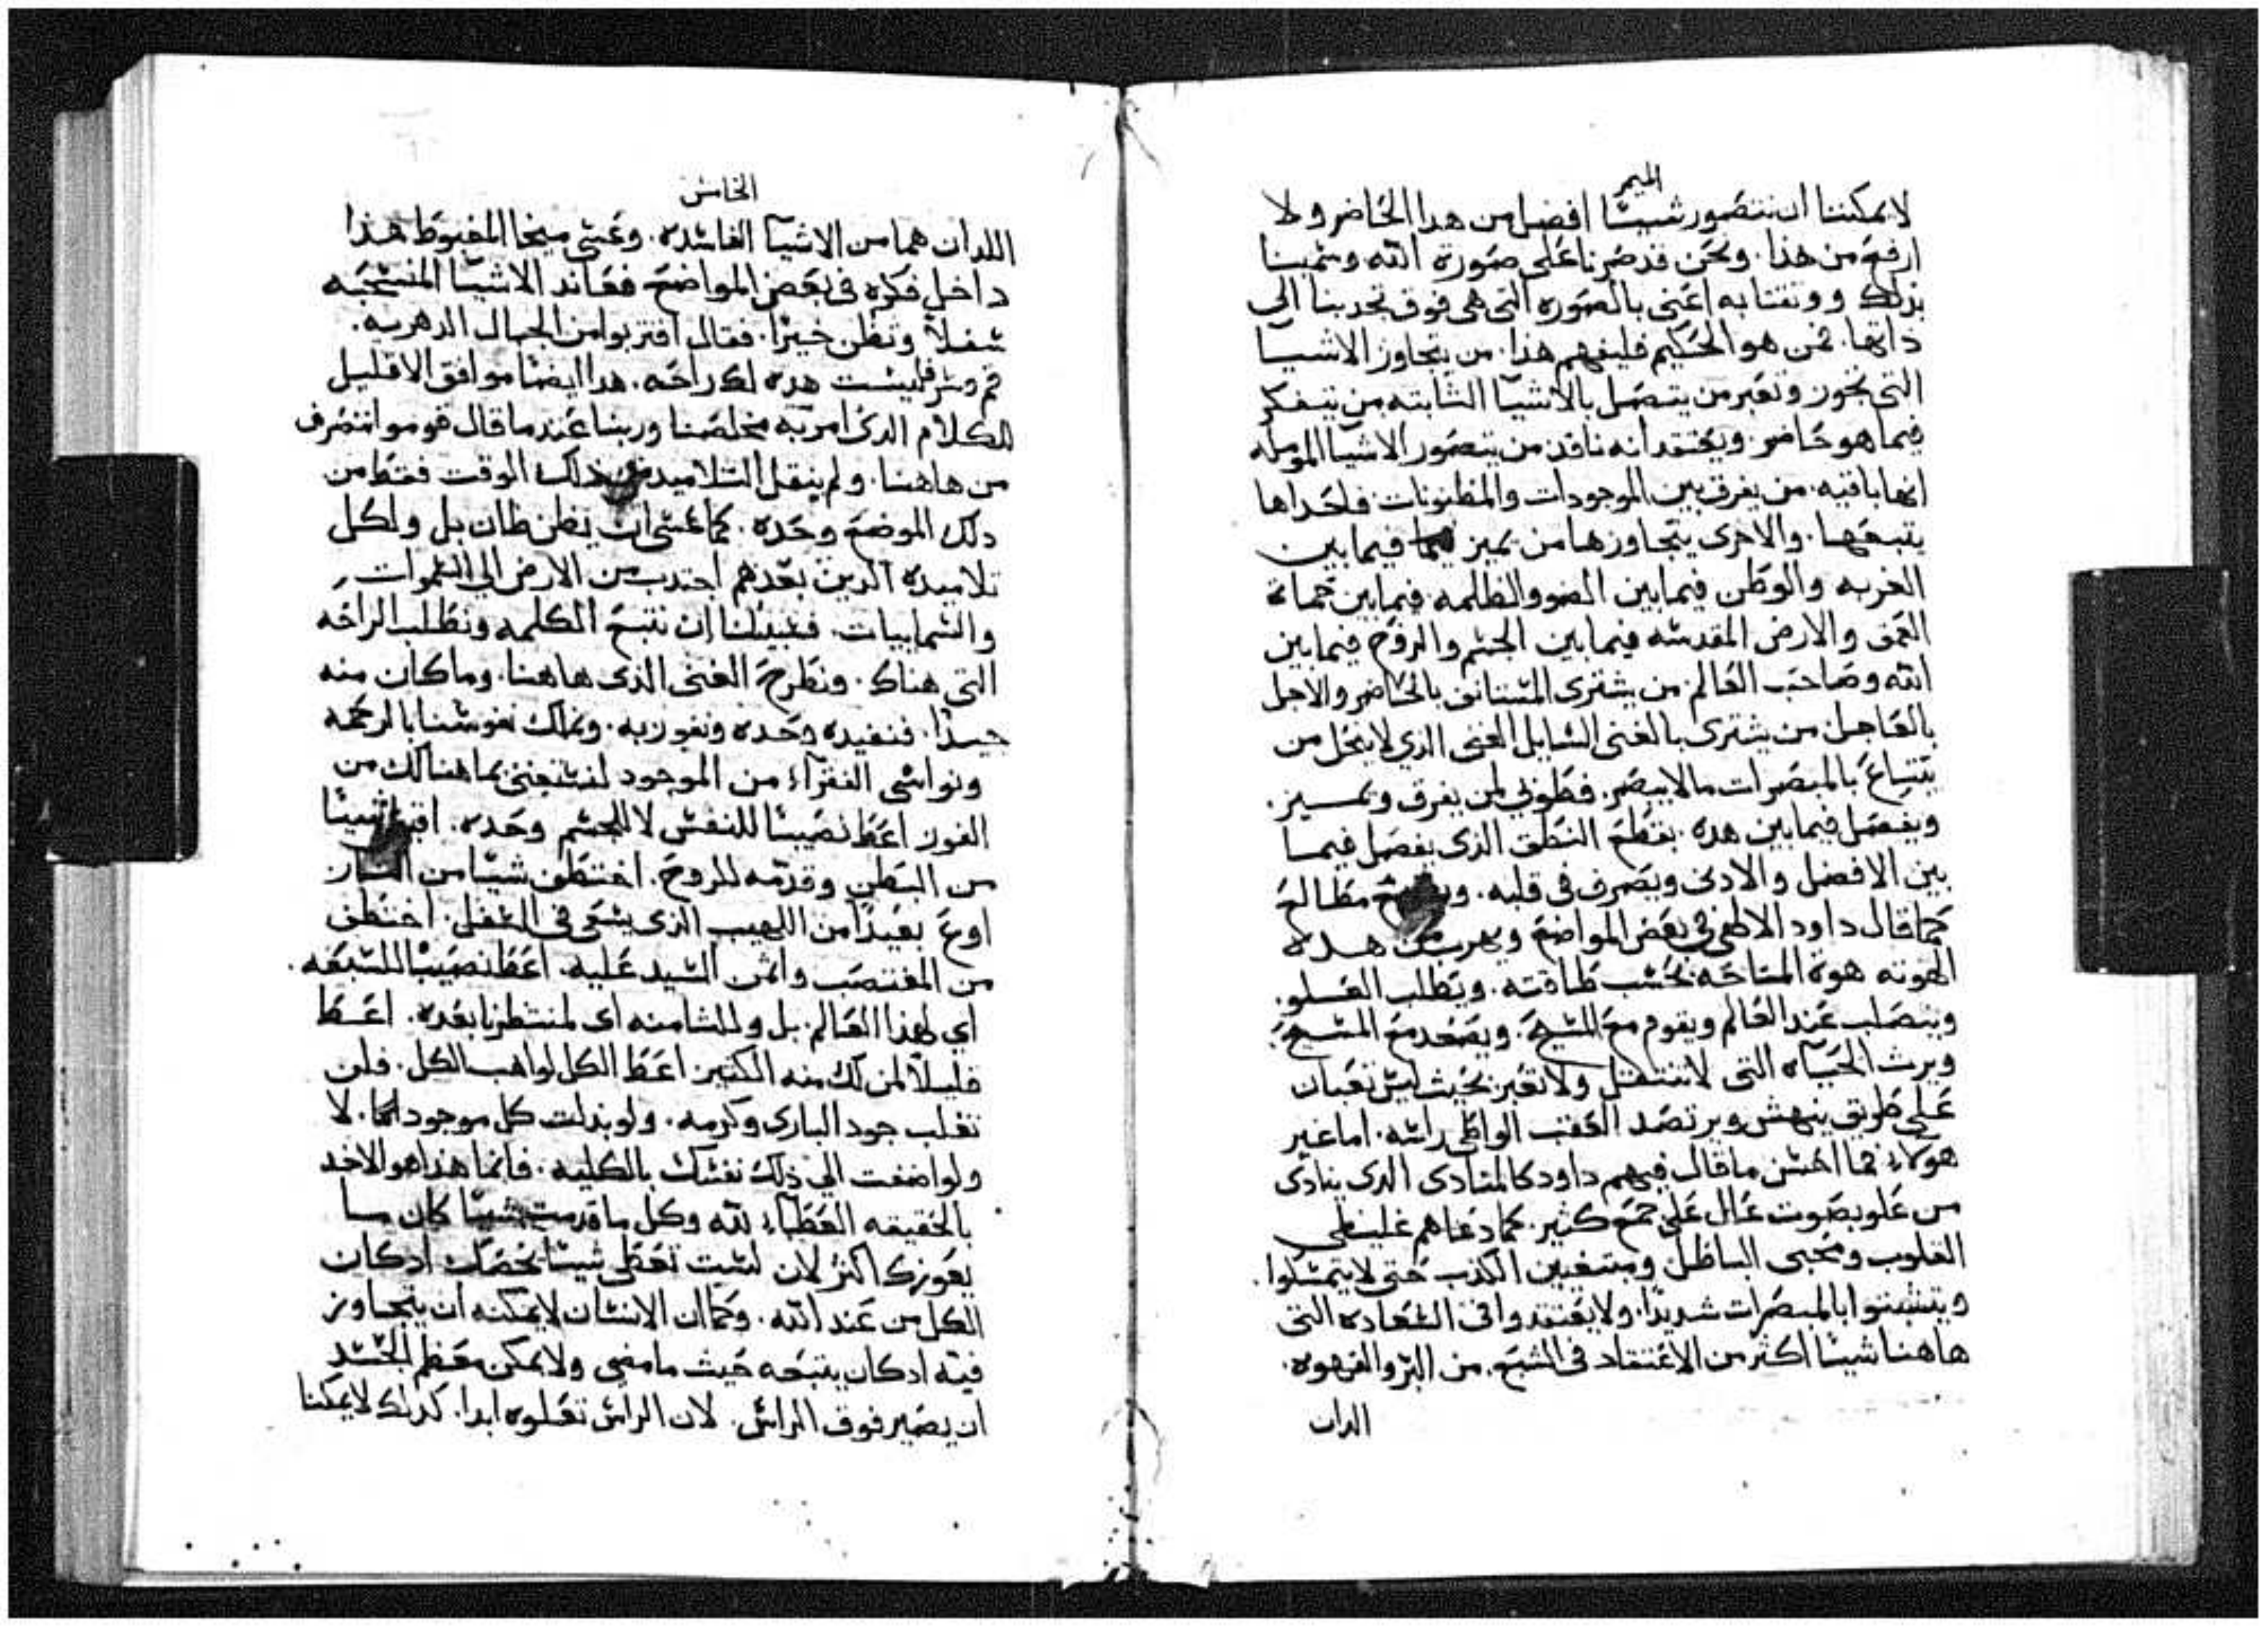 الميمر
لايمكننا ان نتصور شيئًا افضل من هدا الحاضر ولا
ارفع من هذا. ونحن قد صرنا على صورة الله وسمينا
بذلك ووثقنا به اعني بالصوره التى هي فوق تجدبنا الى
داتها. فمن هو الحكيم فليفهم هذا. من يتجاوز الاشيا
التى تجوز وتعبر من يتصل بالاشيا الثابته من يتفكر
فيما هو حاضر ويعتقد انه نافذ من يتصور الاشيا المومله
انها باقيه. من يفرق بين الموجودات والمظنونات فاحداها
يتبعها. والاخرى يتجاوزها من يميز فيما بين
الغربه والوطن فيما بين الضو والظلمه فيما بين حماة
العمق والارض المقدسه فيما بين الجسم والروح فيما بين
الله وصاحب العالم. من يشترى المستانى بالحاضر والاجل
بالعاجل من يشترى بالغنى السايل الغنى الذي لاينحل من
يبتاع بالمبصرات مالايبصر. فطوبى لمن يفرق ويميز.
ويفصل فيما بين هده بقطع النطق الذى يفصل فيما
بين الافضل والادنى ويصرف فى قلبه. مطالع
كما قال داود الالهى في بعض المواضع ويهرب من هده
الهوته هوة المناحه بحسب طاقته. ويطلب العلو.
ويتصلب عند العالم ويقوم مع المسيح. ويصعد مع المسيح.
ويرث الحياه التى لاتنتقل ولاتعبر بحيث ليس تعبان
على طريق ينهش ويرتصد العقب الواطي راسه. اما غير
هولاء فما احسن ما قال فيهم داود كالمنادى الدى ينادى
من علو بصوت عال على جمع كثير. كما دعاهم غليظي
القلوب ومحبى الباطل ومبتغيين الكذب حتى لايتمسكوا.
ويتشبتوا بالمبصرات شديدًا. ولايعتقدوا فى السعاده التى
هاهنا شيئا اكثر من الاعتقاد فى الشبع. من البر والقهوه.
الدان
الخامس
اللدان هما من الاشيا الفاسده. وعسى ميخا المغبوط هذا
داخل فكره فى بعض المواضع فعاند الاشيا المنسحبه
سفلاً وتظن خيرًا. فقال اقتربوا من الجبال الدهريه.
قم وسر فليست هده لك راحه. هدا ايضًا موافق الاقليل
للكلام الدى امر به مخلصنا وربنا عندما قال قوموا ننصرف
من هاهنا. ولم ينقل التلاميد من ذلك الوقت فقط من
دلك الموضع وحده. كما عسى ان يظن ظان بل ولكل
تلاميده الدين بعدهم اجتدب من الارض الى السموات
والسماييات. فسبيلنا ان نتبع الكلمه ونطلب الراحه
التى هناك. ونطرح الغنى الذى هاهنا. وما كان منه
جيدًا. فنفيده وحده ونفوز به. ونملك نفوسنا بالرحمه
ونواسى الفقراء من الموجود لنستغنى بما هنالك من
الفوز اعط نصيبًا للنفس لا للجسم وحده. شيئًا
من البطن وقدمه للروح. اختطف شيئا من النار
اوع بعيدًا من اللهيب الذى يسعى فى السفل. اختطف
من المغتصب وامن السيد عليه. اعط نصيبًا للسبعه.
اي لهذا العالم. بل وللثامنه اى لمنتظرنا بعده. اعط
قليلاً لمن لك منه الكتير. اعط الكل لواهب الكل. فلن
تغلب جود البارى وكرمه. ولو بذلت كل موجود لكما. لا
ولو اضفت الى ذلك نفسك بالكليه. فانما هذا هو الاخد
بالحقيقه العطاء لله وكل ما قدمت شيئًا كان ما
يعوزك اكثر لان لست تعطي شيئًا يخصك ادكان
الكل من عند الله. وكما ان الانسان لايمكنه ان يتجاوز
فيئه ادكان يتبعه حيث ما مضى ولايمكن عظم الجسد
ان يصير فوق الراس. لان الراس تعلوه ابدا. كدلك لايمكننا